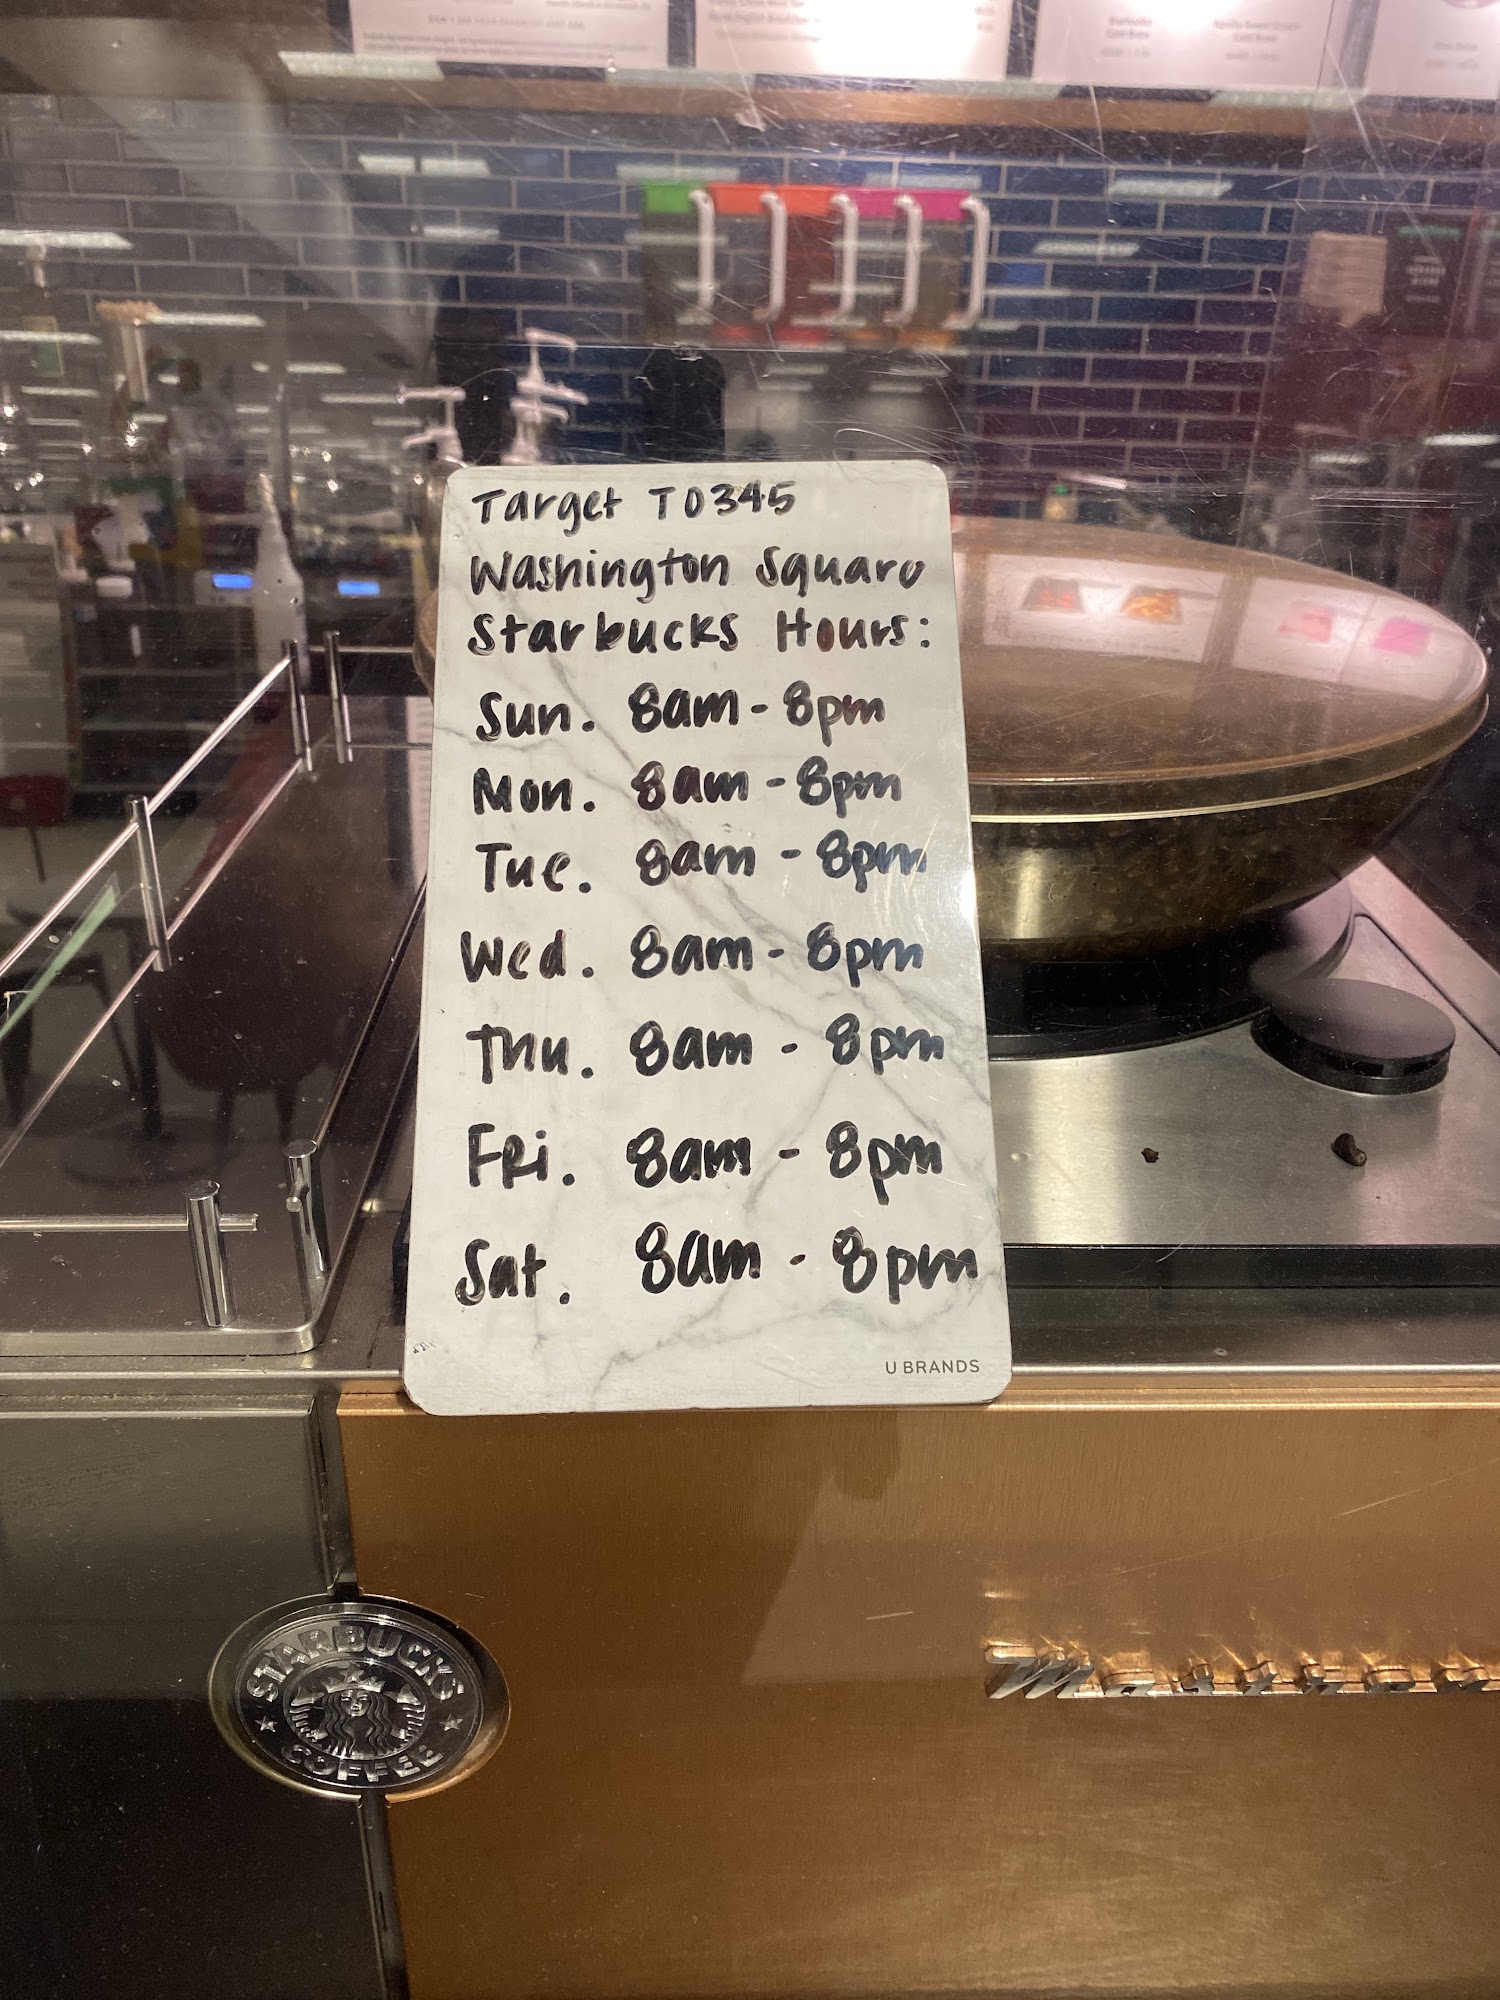 Target T0345
Washington Square
Starbucks Hours:
Sun. 8am - 8pm
Mon. 8am - 8pm
Tue. 8am - 8pm
Wed. 8am - 8pm
Thu. 8am - 8pm
Fri. 8am - 8pm
Sat. 8am - 8pm
U BRANDS
STARBUCKS
COFFEE